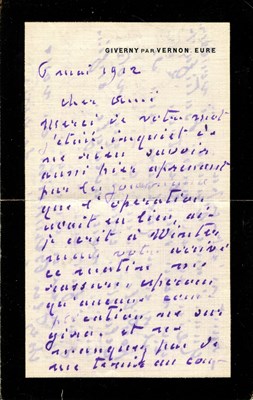 GIVERNY PAR VERNON EURE
6 mai 1912
cher ami
Merci de votre mot
j'étais inquiet de
ne rien savoir
aussi hier apprenant
par les journaux
que l'opération
avait eu lieu, ai-
je écrit à Winter
mais votre arrivé
ce matin me
rassure espérons
qu'aucune com
plication ne sur
gira. et ne
manquez pas de
me tenir au cou-